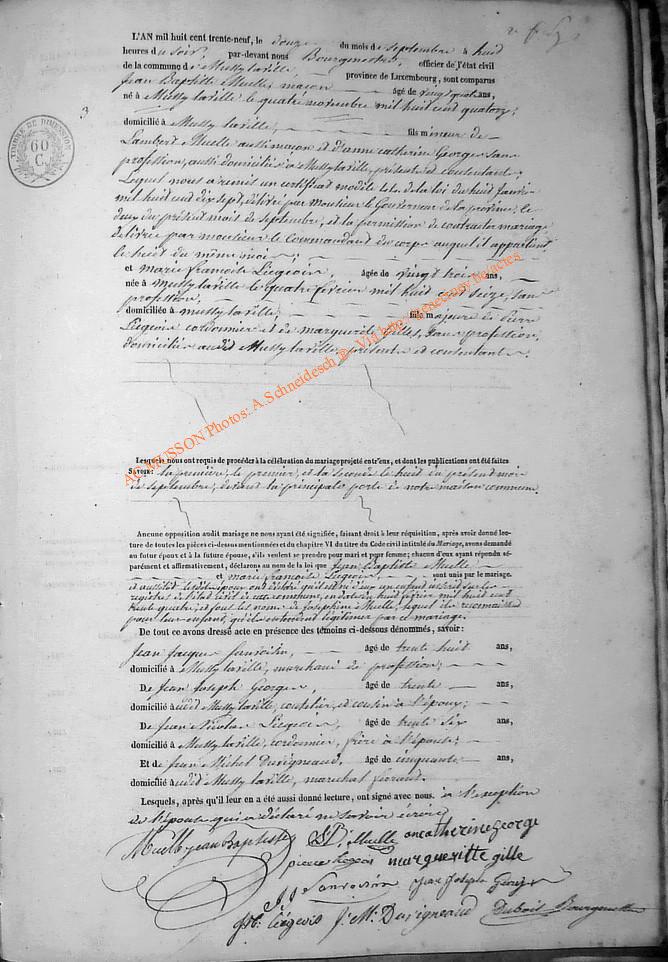 L'AN mil huit cent trente-neuf, le douze du mois de septembre à huit
heures du soir, par-devant nous Bourgmestre, officier de l'état civil
de la commune de Mussy la ville, province de Luxembourg, sont comparus
Jean Baptiste Muelle, maçon âgé de vingt quatre ans,
né à Mussy la ville le quatre novembre mil huit cent quatorze
3
TIMBRE DE DIMENSION
60
C.
domicilié à Mussy la ville, fils mineur de
Lambert Muelle aussi maçon et d'anne catherine George sans
profession, aussi domiciliés à Mussy la ville, présents et consentants;
Lequel nous a remis un certificat modèle de la loi du huit Janvier
mil huit cent dix sept, délivré par Monsieur le Gouverneur de la province, le
deux du présent mois de septembre, et la permission de contracter mariage
délivrée par monsieur le Commandant du corps auquel il appartient,
le huit du même mois;
et marie françoise Liegeois, âgée de vingt trois ans,
née à Mussy la ville le quatre février mil huit cent seize, sans
profession,
domiciliée à mussy la ville, fille majeure de Pierre
Liegeois cordonnier et de marguerite Gilles, sans profession,
domiciliés audit Mussy la ville, présents et consentants;
AC MUSSON Photos: A.Schneidesch
Lesquels nous ont requis de procéder à la célébration du mariage projeté entr'eux, et dont les publications ont été faites
SAVOIR: la première, le premier, et la seconde le huit du présent mois
de septembre, devant la principale porte de notre maison commune.
Aucune opposition audit mariage ne nous ayant été signifiée, faisant droit à leur réquisition, après avoir donné lec-
ture de toutes les pièces ci-dessus mentionnées et du chapitre VI du titre du Code civil intitulé du Mariage, avons demandé
au futur époux et à la future épouse, s'ils veulent se prendre pour mari et pour femme; chacun d'eux ayant répondu sé-
parément et affirmativement, déclarons au nom de la loi que Jean Baptiste Muelle
et marie françoise Liegeois, sont unis par le mariage.
et aussitôt les dits époux ont déclaré qu'il est né d'eux un enfant inscrit sur les
registres de l'état civil de cette commune, en date du huit février mil huit cent
trente quatre, et sous les noms de Josephine Muelle, lequel ils reconnaissent
pour leur enfant, qu'ils entendent légitimer par ce mariage.
De tout ce avons dressé acte en présence des témoins ci-dessous dénommés, savoir:
Jean Jacques Sanvoisin, âgé de trente huit ans,
domicilié à Mussy la ville, marchand de profession;
De Jean Joseph George, âgé de trente ans,
domicilié audit Mussy la ville, et cousin à l'époux;
De Jean Nicolas Liegeois, âgé de trente six ans,
domicilié à Mussy la ville, cordonnier, frère à l'épouse;
Et de Jean Michel Durigneaud, âgé de cinquante ans,
domicilié audit Mussy la ville, marechal ferrant.
Lesquels, après qu'il leur en a été aussi donné lecture, ont signé avec nous. à l'exception
de l'épouse qui a déclaré ne savoir écrire
Muelle jean Baptiste Muelle anne catherine George
pierre liegois marguerittte gille
J J Sanvoisin Jean Joseph George
Liégeois J. M. Durigneaud Dubois Bourgmestre